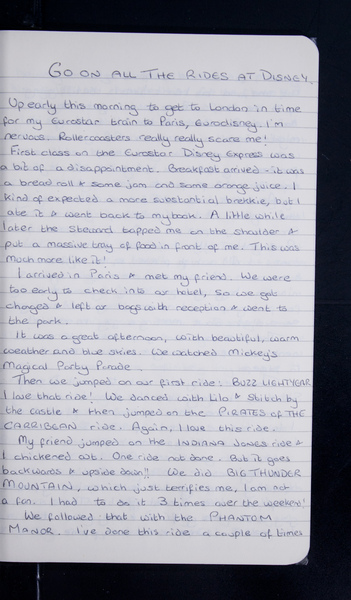 GO ON ALL THE RIDES AT DISNEY.
Up early this morning to get to London in time
for my Eurostar train to Paris, Eurodisney. I'm
nervous. Rollercoasters really really scare me!
First class on the Eurostar Disney Express was
a bit of a disappointment. Breakfast arrived - it was
a bread roll & some jam and some orange juice. I
kind of expected a more substantial brekkie, but I
ate it & went back to my book. A little while
later the steward tapped me on the shoulder &
put a massive tray of food in front of me. This was
much more like it!
I arrived in Paris & met my friend. We were
too early to check into our hotel, so we got
changed & left our bags with reception & went to
the park.
It was a great afternoon, with beautiful, warm
weather and blue skies. We watched Mickey's
Magical Party Parade.
Then we jumped on our first ride: BUZZ LIGHTYEAR.
I love that ride! We danced with Lilo & Stitch by
the castle & then jumped on the PIRATES OF THE
CARRIBEAN ride. Again, I love this ride.
My friend jumped on the INDIANA JONES ride &
I chickened out. One ride not done. But it goes
backwards & upside down!! We did BIG THUNDER
MOUNTAIN, which just terrifies me, I am not
a fan. I had to do it 3 times over the weekend!
We followed that with the PHANTOM
MANOR. I've done this ride a couple of times